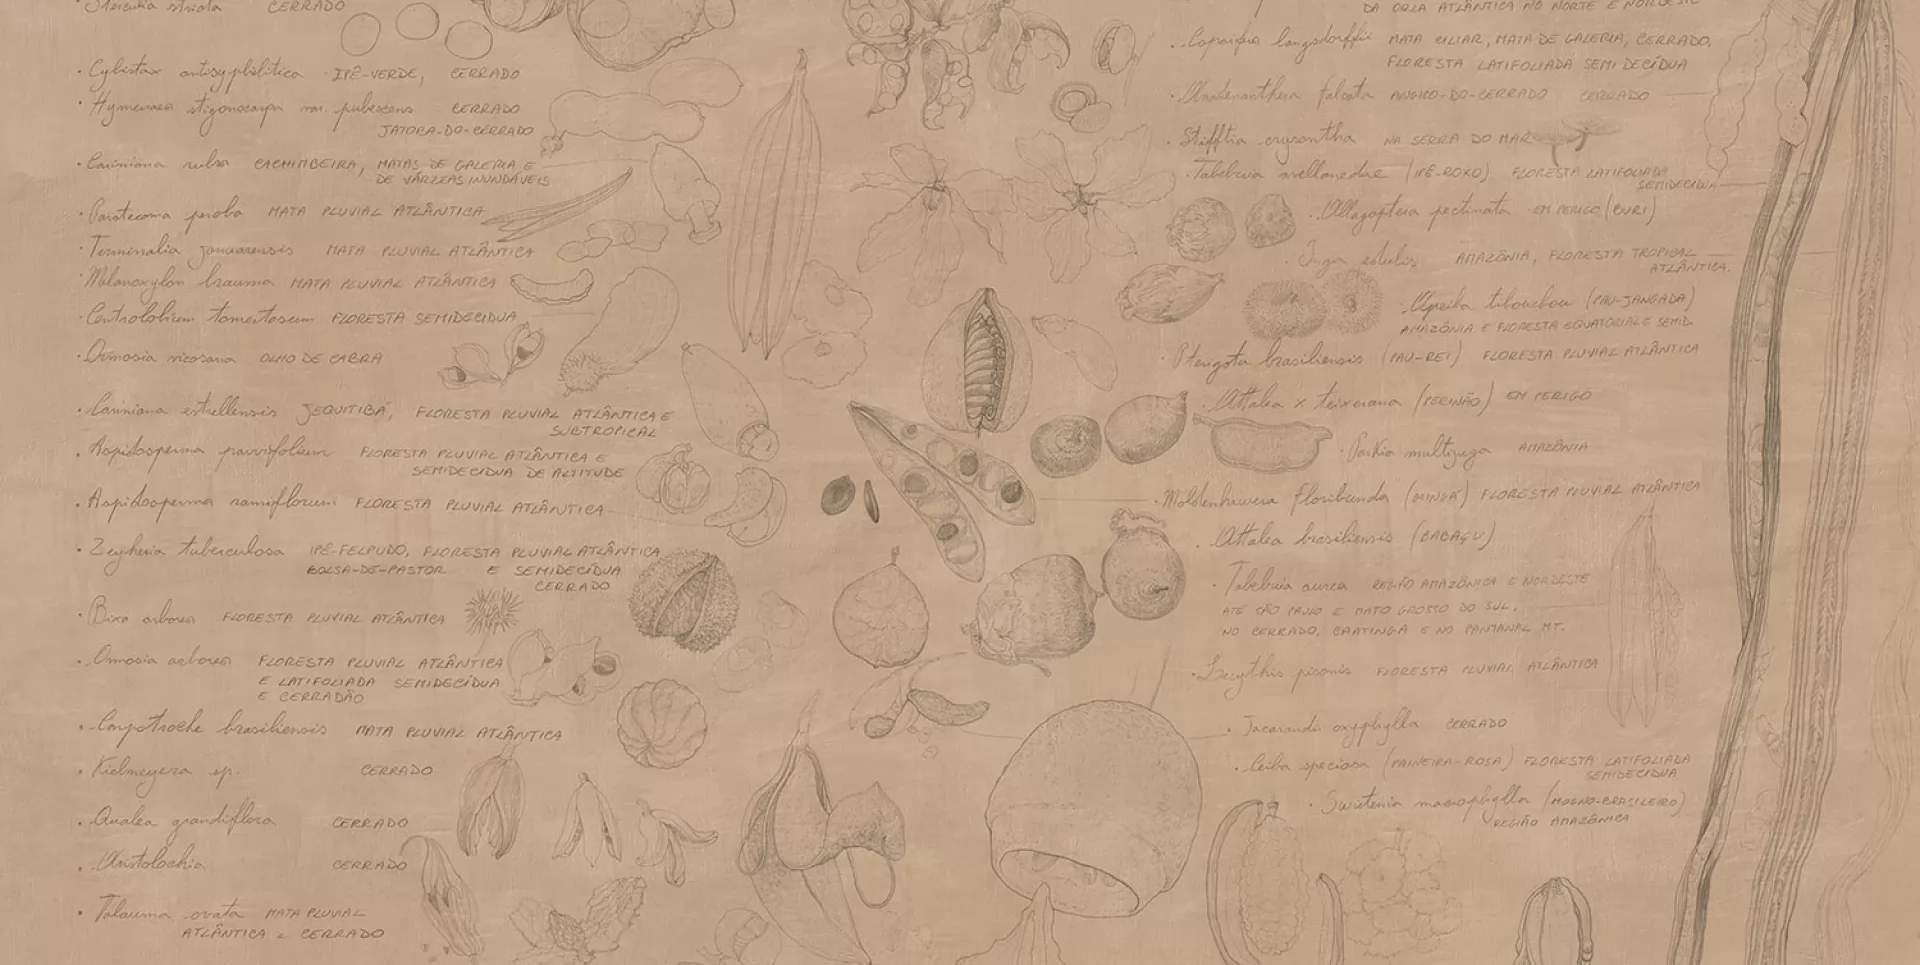 Sterculia striata CERRADO
Cybistax antisyphilitica - IPÊ-VERDE, CERRADO
Hymenaea stigonocarpa var. pubescens CERRADO
JATOBA-DO-CERRADO
Cariniana rubra CACHIMBEIRA, MATAS DE GALERIA E
DE VÁRZEAS INUNDÁVEIS
Paratecoma peroba MATA PLUVIAL ATLÂNTICA
Terminalia januarensis MATA PLUVIAL ATLÂNTICA
Melanoxylon brauma MATA PLUVIAL ATLÂNTICA
Centrolobium tomentosum FLORESTA SEMIDECIDUA
Ormosia nicosana OLHO DE CABRA
Cariniana estrellensis JEQUITIBÁ, FLORESTA PLUVIAL ATLÂNTICA E
SUBTROPICAL
Aspidosperma parvifolium FLORESTA PLUVIAL ATLÂNTICA E
SEMIDECIDUA DE ALTITUDE
Aspidosperma ramiflorum FLORESTA PLUVIAL ATLÂNTICA
Zeyheria tuberculosa IPÊ-FELPUDO, FLORESTA PLUVIAL ATLÂNTICA
BOLSA-DE-PASTOR E SEMIDECÍDUA
CERRADO
Bixa arborea FLORESTA PLUVIAL ATLÂNTICA
Ormosia arborea FLORESTA PLUVIAL ATLÂNTICA
E LATIFOLIADA SEMIDECÍDUA
E CERRADÃO
Carpotroche brasiliensis MATA PLUVIAL ATLÂNTICA
Kielmeyera sp. CERRADO
Qualea grandiflora CERRADO
Aristolochia CERRADO
Talauma ovata MATA PLUVIAL
ATLÂNTICA E CERRADO
DA ORLA ATLÂNTICA NO NORTE E NORDESTE
Copaifera langsdorffii MATA CILIAR, MATA DE GALERIA, CERRADO,
FLORESTA LATIFOLIADA SEMIDECÍDUA
Anadenanthera falcata ANGICO-DO-CERRADO CERRADO
Stifftia crysantha NA SERRA DO MAR
Tabebuia avellanedae (IPÊ-ROXO) FLORESTA LATIFOLIADA
SEMIDECIDUA
Allagoptera pectinata EM PERIGO (BURI)
Inga edulis AMAZÔNIA, FLORESTA TROPICAL
ATLÂNTICA.
Apeiba tibourbou (PAU-JANGADA)
AMAZÔNIA E FLORESTA EQUATORIAL E SEMID.
Pterigota brasiliensis (PAU-REI) FLORESTA PLUVIAL ATLÂNTICA
Attalea x teixeirana (PERINÃO) EM PERIGO
Parkia multijuga AMAZÔNIA
Moldenhawera floribunda FLORESTA PLUVIAL ATLÂNTICA
Attalea brasiliensis (BABAÇU)
Tabebuia aurea REGIÃO AMAZÔNICA E NORDESTE
ATÉ SÃO PAULO E MATO GROSSO DO SUL,
NO CERRADO, CAATINGA E NO PANTANAL MT.
Lecythis pisonis FLORESTA PLUVIAL ATLÂNTICA
Jacaranda oxyphylla CERRADO
Ceiba speciosa (PAINEIRA-ROSA) FLORESTA LATIFOLIADA
SEMIDECIDUA
Swietenia macrophylla (MOGNO-BRASILEIRO)
REGIÃO AMAZÔNICA